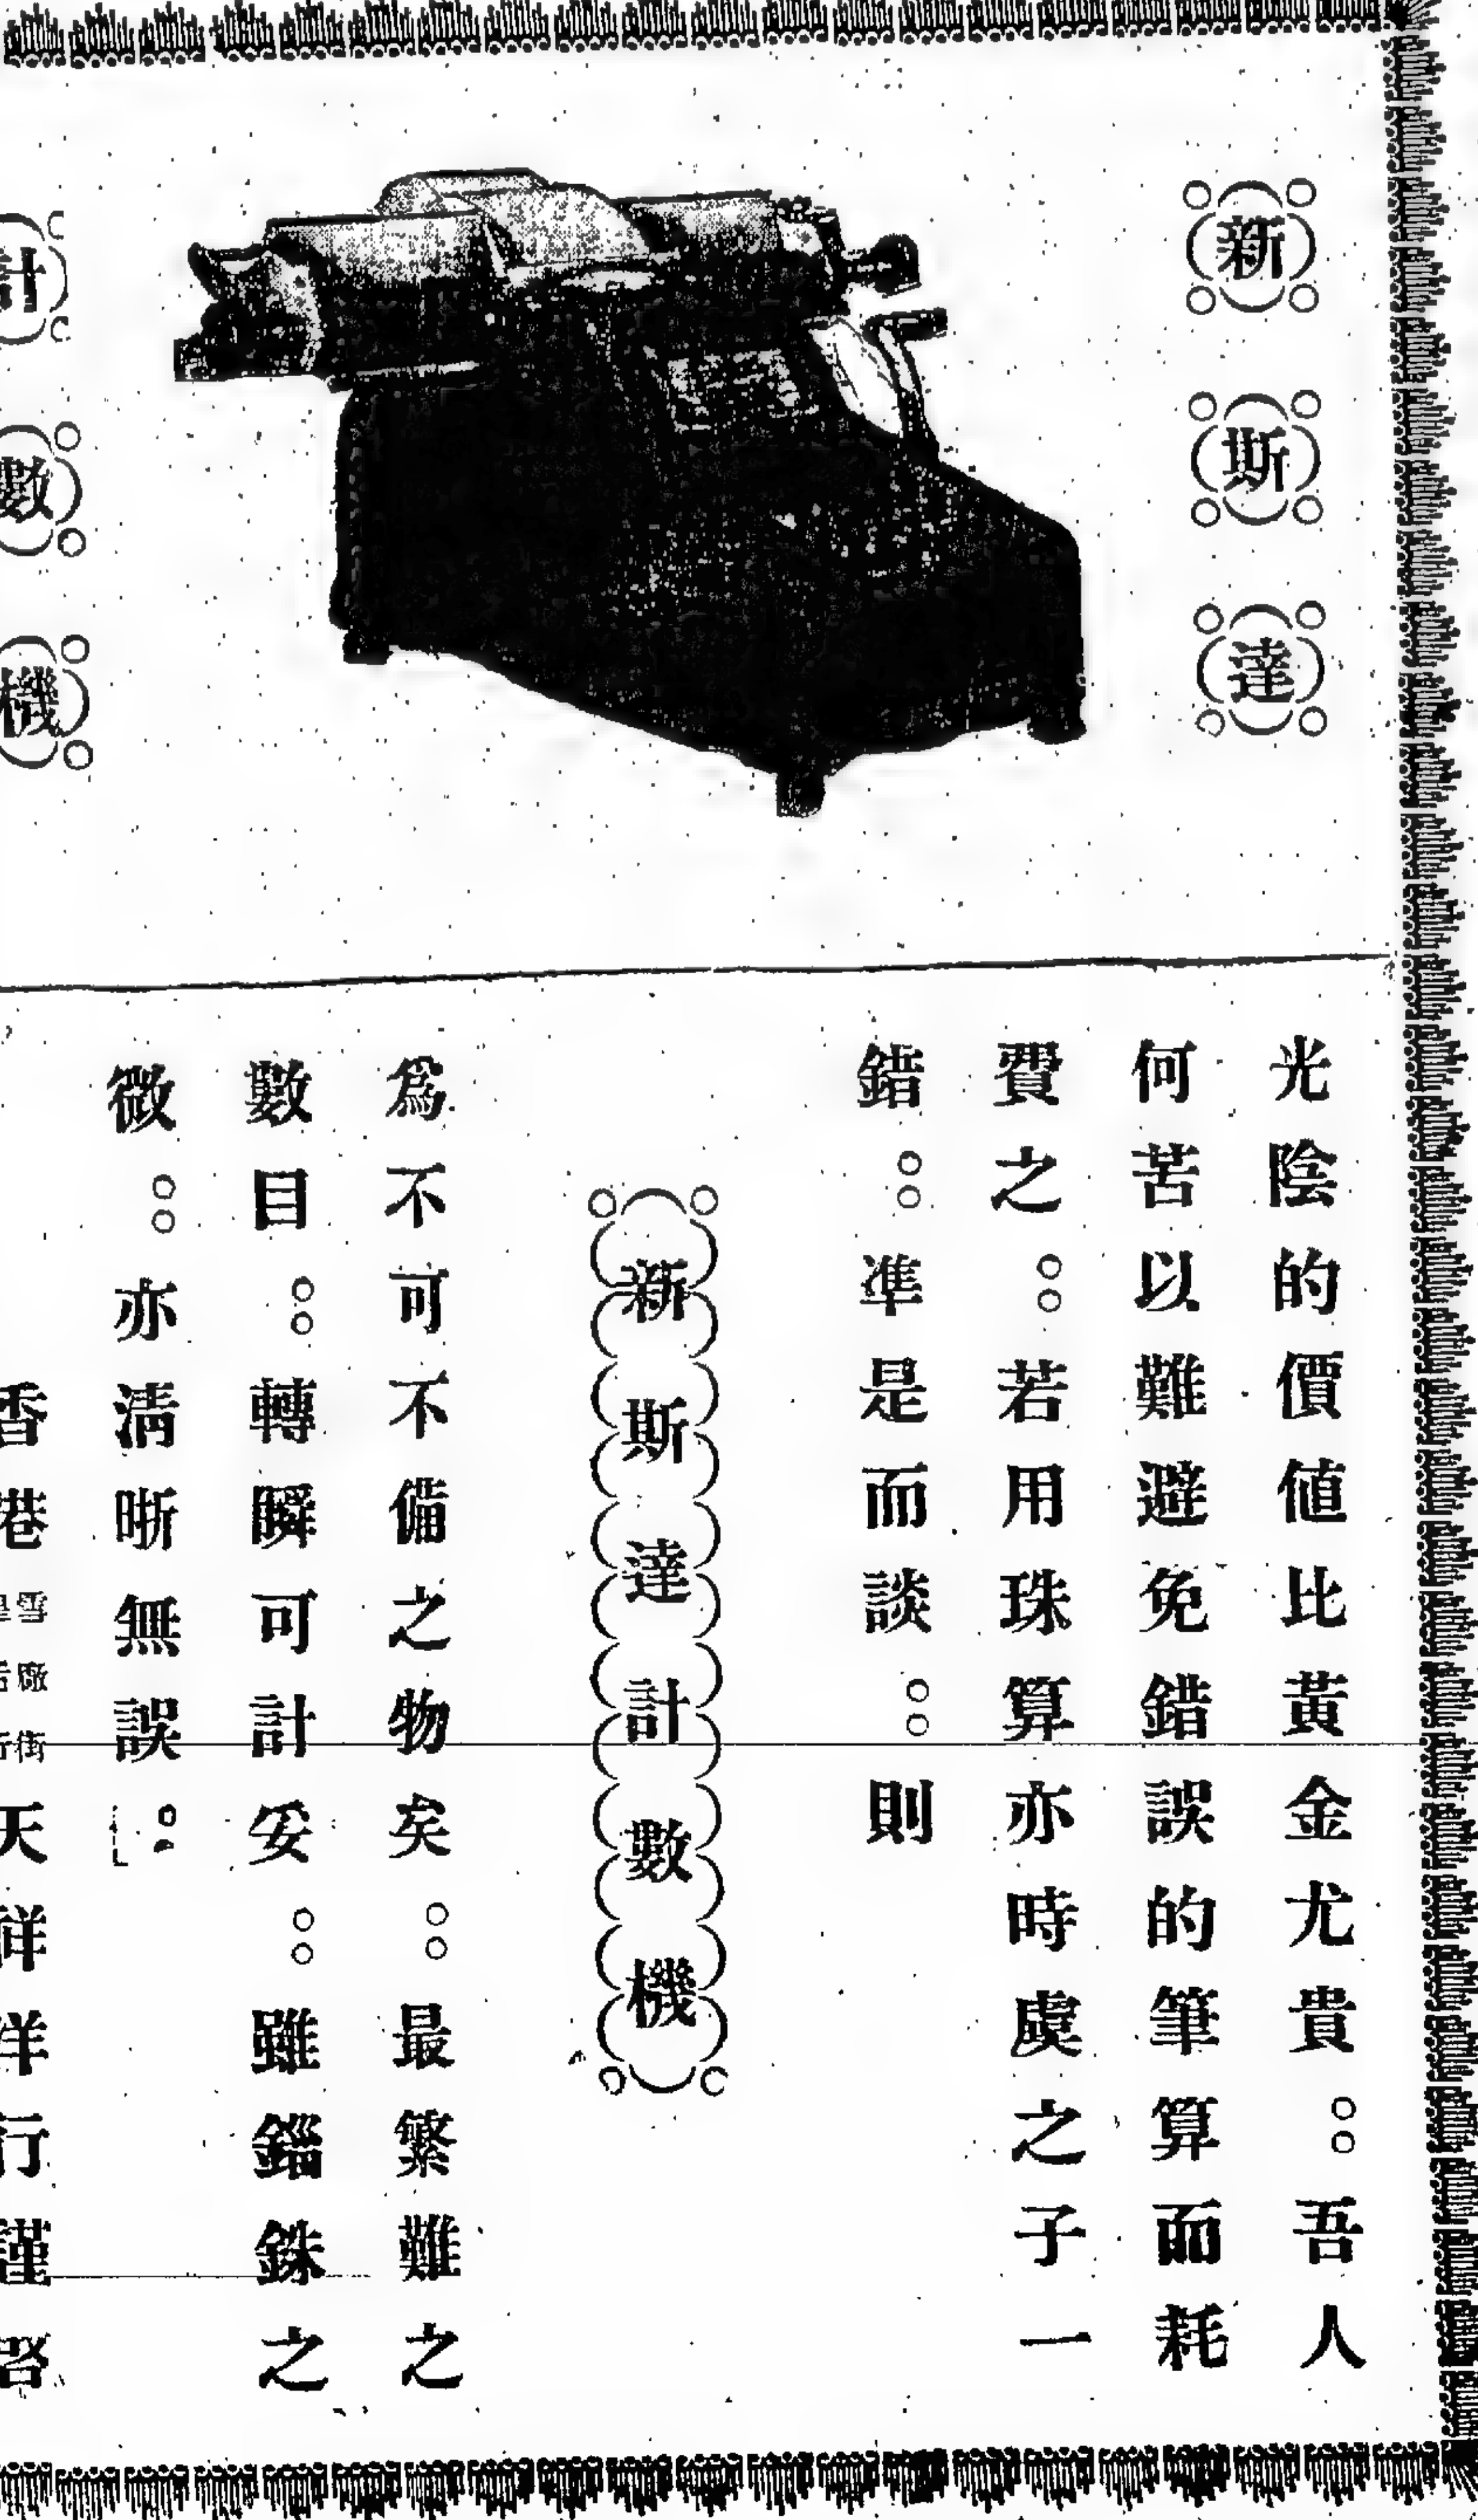 新斯達
計數機
光陰的價値比黃金尤貴○○吾人
何苦以難避免錯誤的筆算而耗
費之○○若用珠算亦時虞之子一
錯○○準是而談○○則
新斯達計數機
爲不可不備之物矣○○最繁難之
數目○○轉瞬可計妥○○雖錙銖之
微○○亦淸晰無誤
香港
雪廠街
天祥洋行謹啓